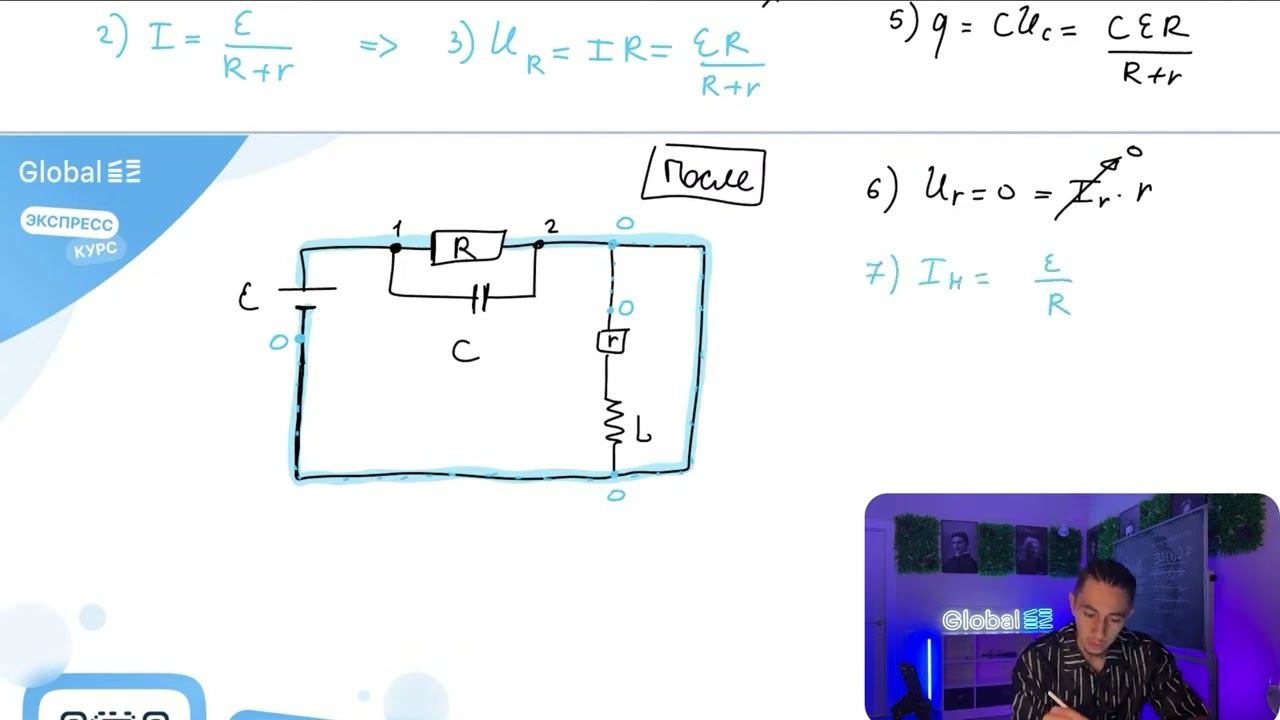 2) I = ε / (R+r) => 3) U_R = IR = εR / (R+r)
5) q = CU_c = CεR / (R+r)
Global EE
ЭКСПРЕСС
КУРС
После
6) U_r = 0 = I_r · r
0
7) I_н = ε / R
1
R
2
0
ε
0
C
0
r
L
0
Global EE